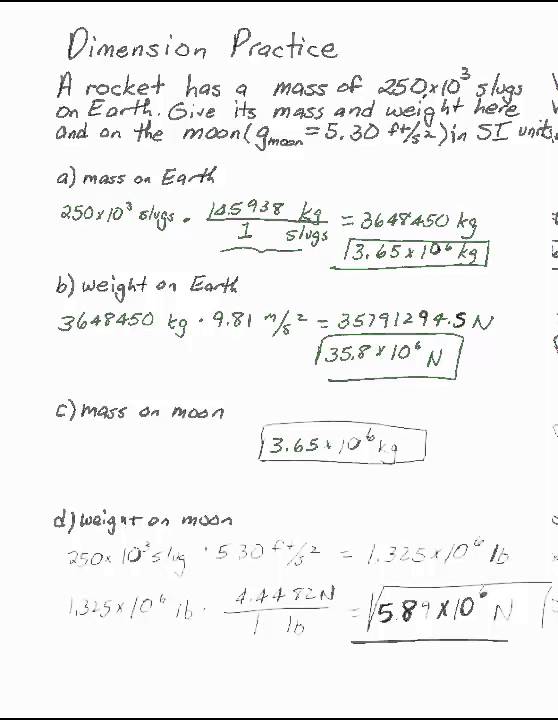 Dimension Practice
A rocket has a mass of 250x10³ slugs
on Earth. Give its mass and weight here
and on the moon (g_moon = 5.30 ft/s²) in SI units.
a) mass on Earth
250x10³ slugs · 14.5938 kg / 1 slugs = 3648450 kg
3.65x10⁶ kg
b) weight on Earth
3648450 kg · 9.81 m/s² = 35791294.5 N
35.8x10⁶ N
c) mass on moon
3.65x10⁶ kg
d) weight on moon
250x10³ slug · 5.30 ft/s² = 1.325x10⁶ lb
1.325x10⁶ lb · 4.4482N / 1 lb = 5.89x10⁶ N